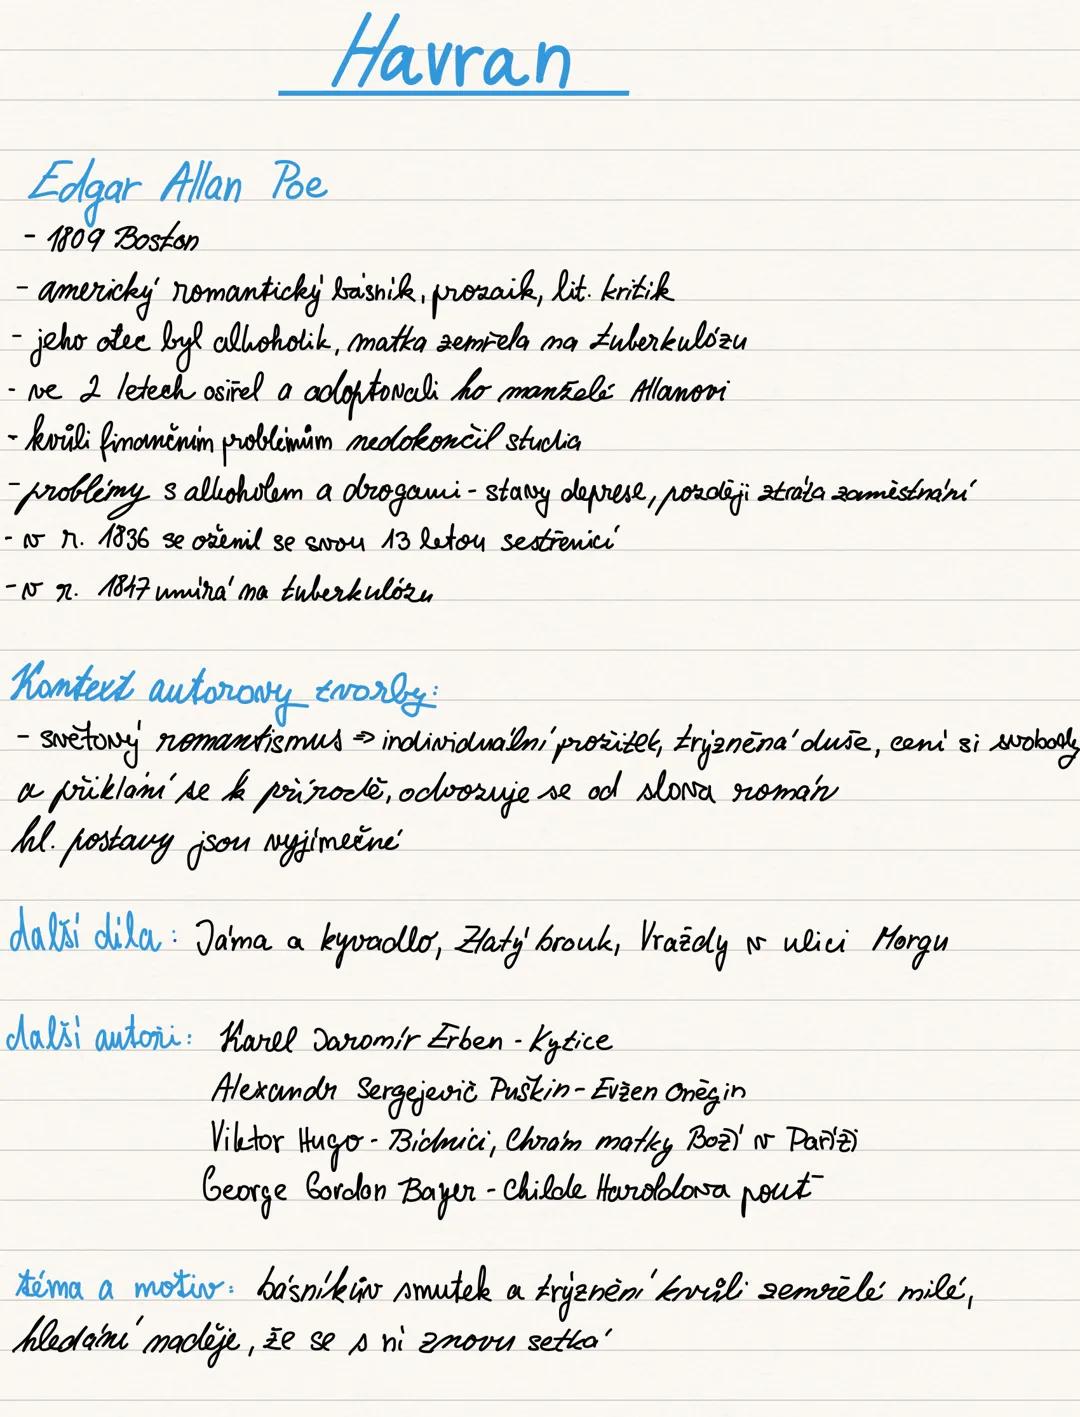 Havran
Edgar Allan Poe
- 1809 Boston
- americký romantický básník, prozaik, lit. kritik
- jeho otec byl alkoholik, matka zemřela na tuberkulózu
- ve 2 letech osiřel a adoptovali ho manželé Allanovi
- kvůli finančním problémům nedokončil studia
- problémy s alkoholem a drogami - stavy deprese, později ztráta zaměstnání
- v r. 1836 se oženil se svou 13 letou sestřenicí
- v r. 1847 umírá na tuberkulózu
Kontext autorovy tvorby:
- světový romantismus => individuální prožitek, trýzněná duše, cení si svobody
a přiklání se k přírodě, odvozuje se od slova román
hl. postavy jsou vyjímečné
další díla: Jáma a kyvadlo, Zlatý brouk, Vraždy v ulici Morgu
další autoři: Karel Jaromír Erben - Kytice
Alexandr Sergejevič Puškin - Evžen Oněgin
Viktor Hugo - Bídníci, Chrám matky Boží v Paříži
George Gordon Bayer - Childe Haroldova pouť
téma a motiv: básníkův smutek a trýznění kvůli zemřelé milé,
hledání naděje, že se s ní znovu setká